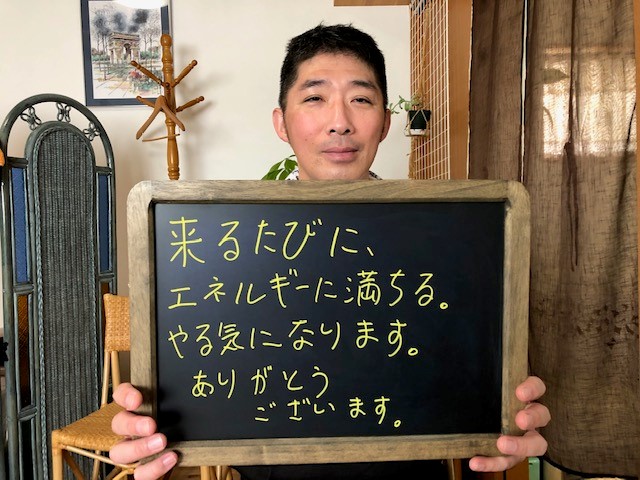 来るたびに、
エネルギーに満ちる。
やる気になります。
ありがとう
ございます。